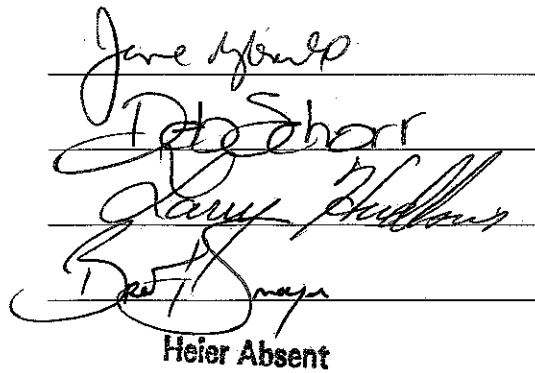 Jane Raybould
Deb Schorr
Larry Hudkins
Brent Smoyer
Heier Absent